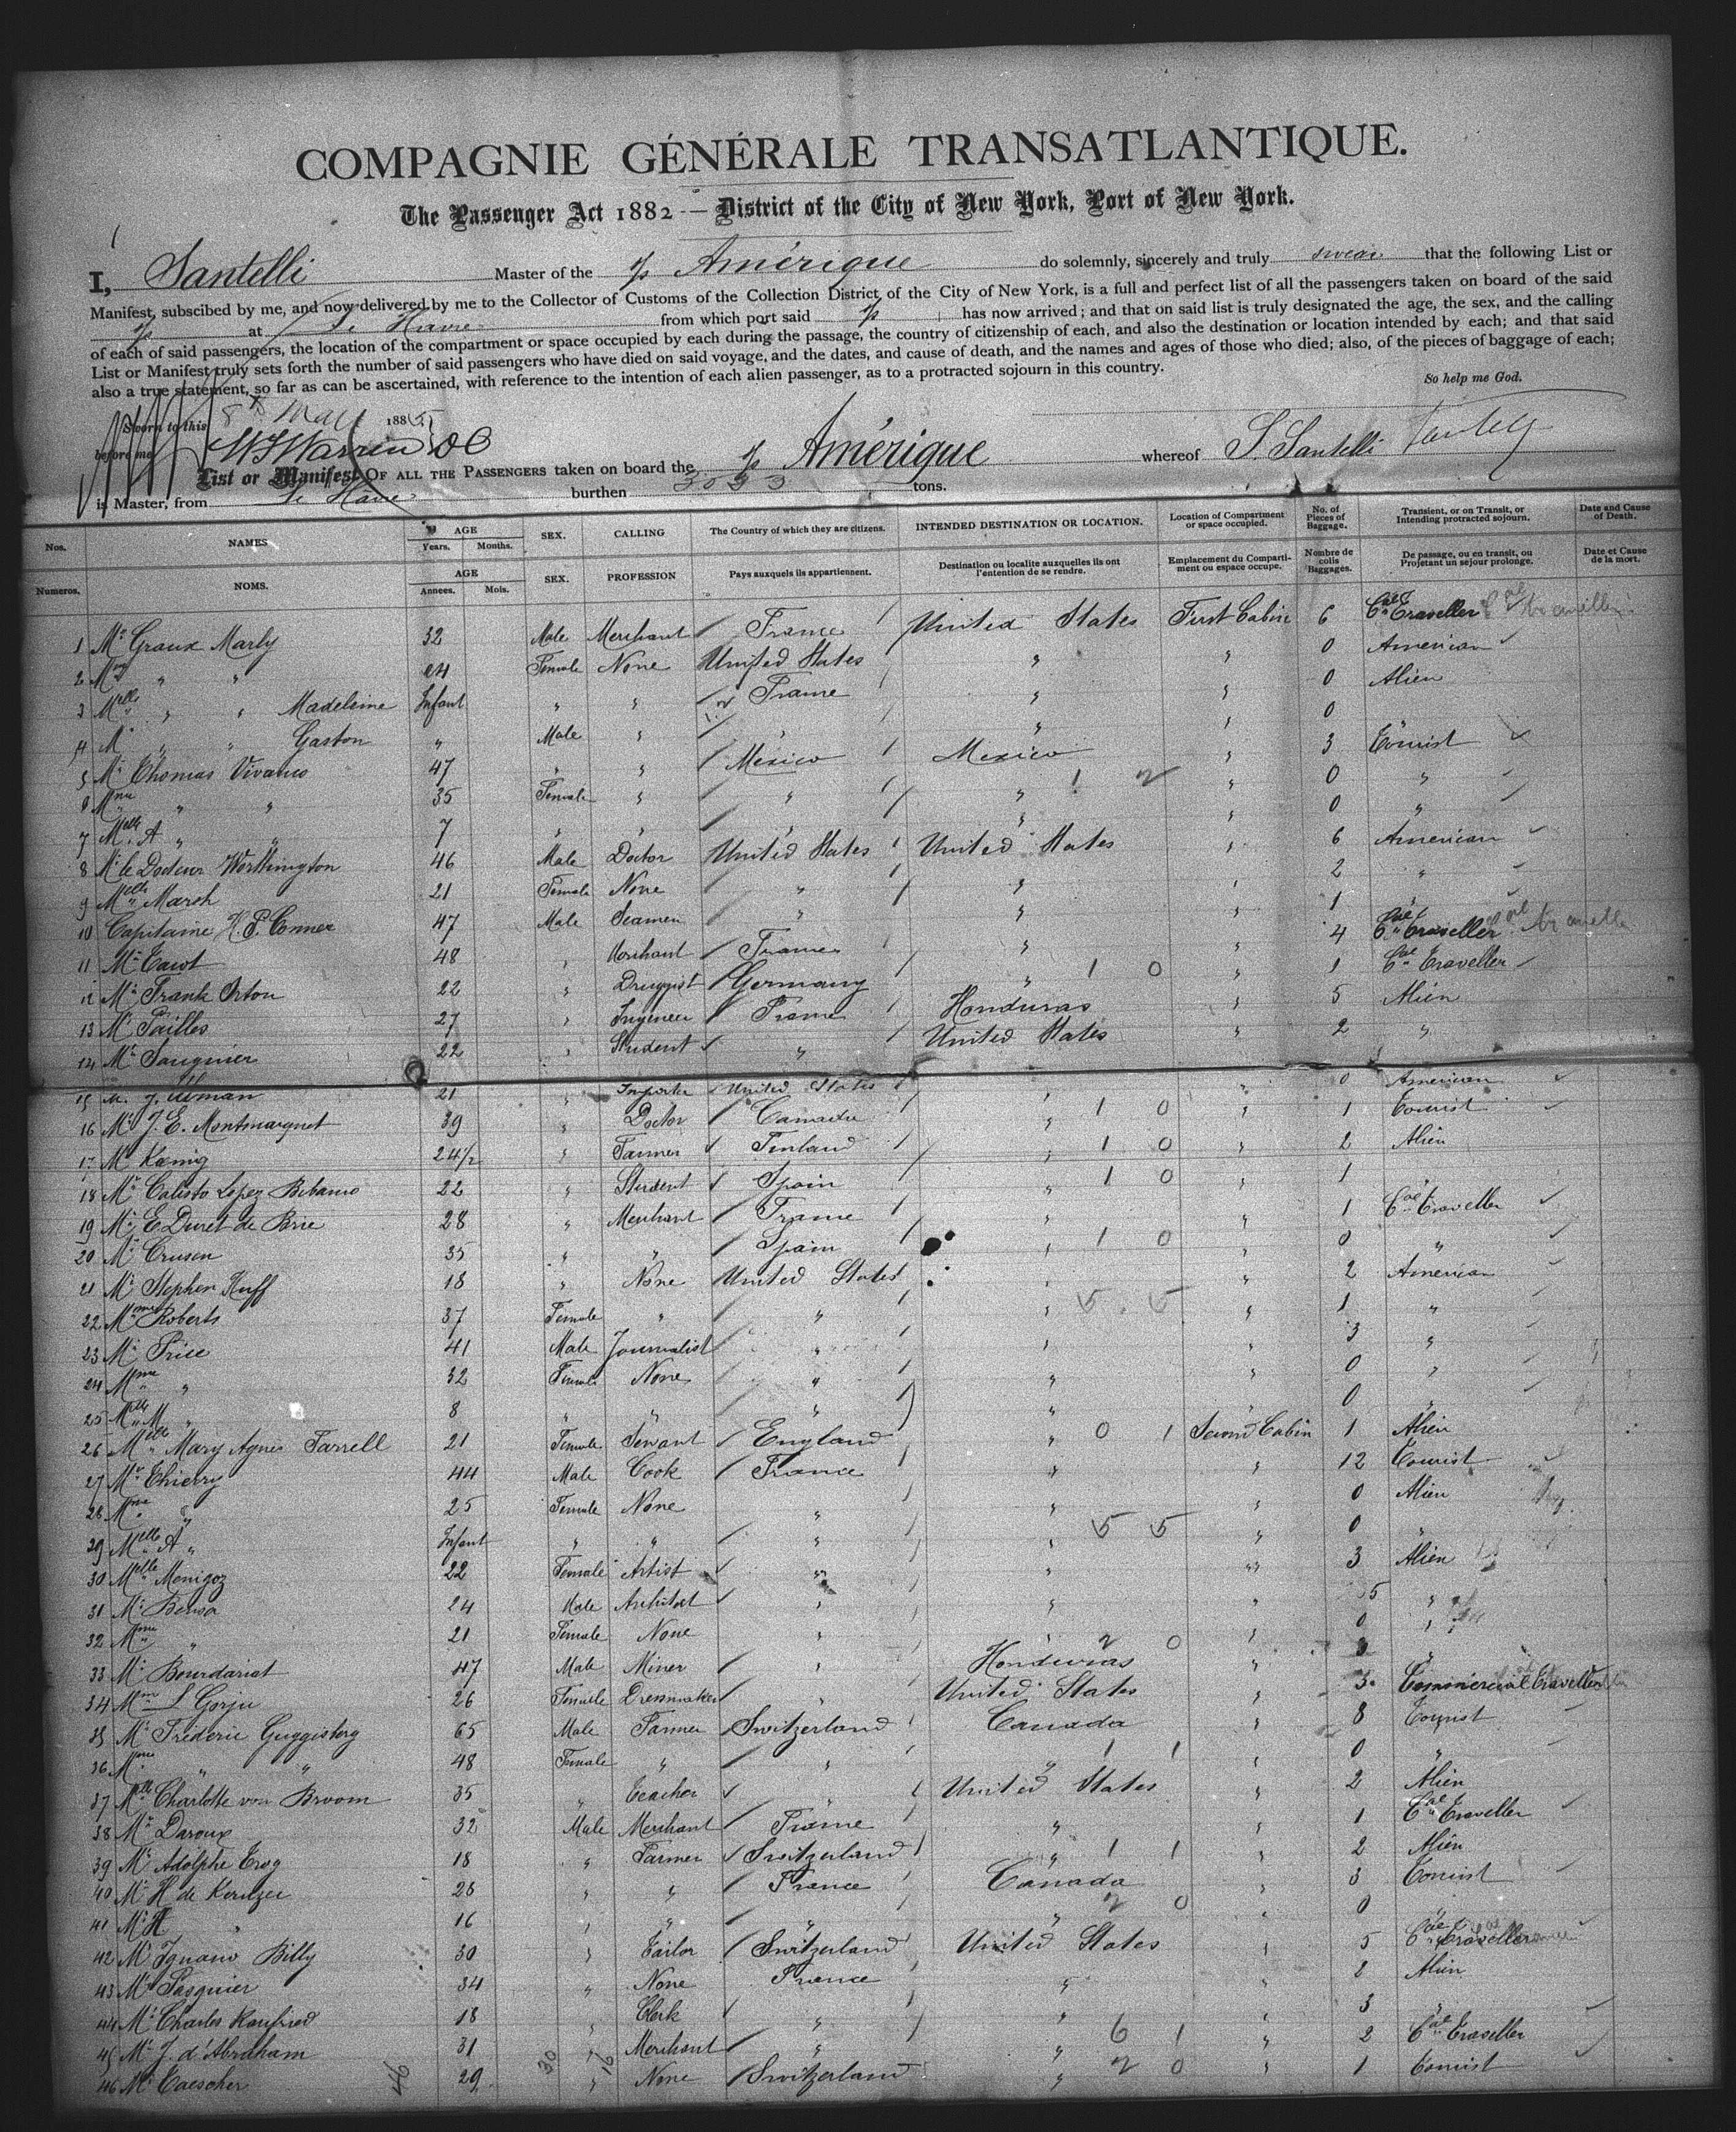 COMPAGNIE GÉNÉRALE TRANSATLANTIQUE.
The Passenger Act 1882 — District of the City of New York, Port of New York.
I, Santelli Master of the s/s Amérique do solemnly, sincerely and truly swear that the following List or
Manifest, subscibed by me, and now delivered by me to the Collector of Customs of the Collection District of the City of New York, is a full and perfect list of all the passengers taken on board of the said
s/s at Le Havre from which port said s/s has now arrived; and that on said list is truly designated the age, the sex, and the calling
of each of said passengers, the location of the compartment or space occupied by each during the passage, the country of citizenship of each, and also the destination or location intended by each; and that said
List or Manifest truly sets forth the number of said passengers who have died on said voyage, and the dates, and cause of death, and the names and ages of those who died; also, of the pieces of baggage of each;
also a true statement, so far as can be ascertained, with reference to the intention of each alien passenger, as to a protracted sojourn in this country.
So help me God.
Sworn to this 8th May 1885
before me
List or Manifest OF ALL THE PASSENGERS taken on board the s/s Amérique whereof S Santelli
is Master, from Le Havre burthen tons.
Nos. NAMES AGE Years. Months. SEX. CALLING The Country of which they are citizens. INTENDED DESTINATION OR LOCATION. Location of Compartment or space occupied. No. of Pieces of Baggage. Transient, or on Transit, or Intending protracted sojourn. Date and Cause of Death.
Numeros. NOMS. AGE Annees. Mois. SEX. PROFESSION Pays auxquels ils appartiennent. Destination ou localite auxquelles ils ont l'entention de se rendre. Emplacement du Compartiment ou espace occupe. Nombre de colis Baggages. De passage, ou en transit, ou Projetant un sejour prolonge. Date et Cause de la mort.
1 Mr Graux Marly 32 Male Merchant France United States First Cabin 6 Cal Traveller
2 Mme " " 24 Female None United States " " 0 American
3 Melle " " Madeleine Infant " " France " " 0 Alien
4 M " " Gaston " Male " " " " 0 "
5 Mr Thomas Vivanco 47 " " Mexico Mexico " 3 Tourist
6 Mme " " 35 Female " " " " 0 "
7 Melle A " " 7 " " " " " 0 "
8 Mr le Docteur Worthington 46 Male Doctor United States United States " 6 American
9 Melle Marsh 21 Female None " " " 2 "
10 Capitaine H. P. Conner 47 Male Seamen " " " 1 "
11 Mr 48 " Merchant France " " 4 Cal Traveller
12 Mr Frank Orton 22 " Druggist Germany " " 1 Cal Traveller
13 Mr Pailles 27 " Ingeneer France Honduras " 5 Alien
14 Mr Sauquier 22 " Student " United States " 2 "
15 M. J. Ulman 21 " United States " " 0 American
16 Mr J. E. Montmarquet 39 " Doctor Canada " " 1 Tourist
17 Mr Kœnig 24 1/2 " Farmer Finland " " 2 Alien
18 Mr Calisto Lopez 22 " Student Spain " " 1 "
19 Mr E Duret de Brie 28 " Merchant France " " 1 Cal Traveller
20 Mr Crusen 35 " " Spain " " 0 "
21 Mr Stephen Huff 18 " None United States " " 2 American
22 Mme Roberts 37 Female " " " " 1 "
23 Mr Price 41 Male Journalist " " " 3 "
24 Mme " 32 Female None " " " 0 "
25 Melle M " 8 " " " " " 0 "
26 Melle Mary Agnes Farrell 21 Female Servant England " Second Cabin 1 Alien
27 Mr Thierry 44 Male Cook France " " 12 Tourist
28 Mme " 25 Female None " " " 0 Alien
29 Melle A " Infant " " " " " 0 "
30 Melle Menigoz 22 Female Artist " " " 3 Alien
31 Mr 24 Male Architect " " " 5 "
32 Mme " 21 Female None " " " 0 "
33 Mr Bourdariat 47 Male Miner " Honduras " 3 "
34 Mme L Gorju 26 Female Dressmaker " United States " 3 Commercial Traveller
35 Mr Frederic Guggisberg 65 Male Farmer Switzerland Canada " 8 Tourist
36 Mme " " 48 Female " " " " 0 "
37 Melle Charlotte von Broom 35 " Teacher " United States " 2 Alien
38 Mr Daroux 32 Male Merchant France " " 1 Cal Traveller
39 Mr Adolphe Trog 18 " Farmer Switzerland " " 2 Alien
40 Mr H de 28 " " France Canada " 3 Tourist
41 Mr H " 16 " " " " " 0 "
42 Mr Ignano Billy 30 " Tailor Switzerland United States " 5 Cal Traveller
43 Mr Pasquier 34 " None France " " 2 Alien
44 Mr Charles 18 " Clerk " " " 3 "
45 Mr J. d'Abraham 31 " Merchant " " " 2 Cal Traveller
46 Mr Caescher 29 " None Switzerland " " 1 Tourist